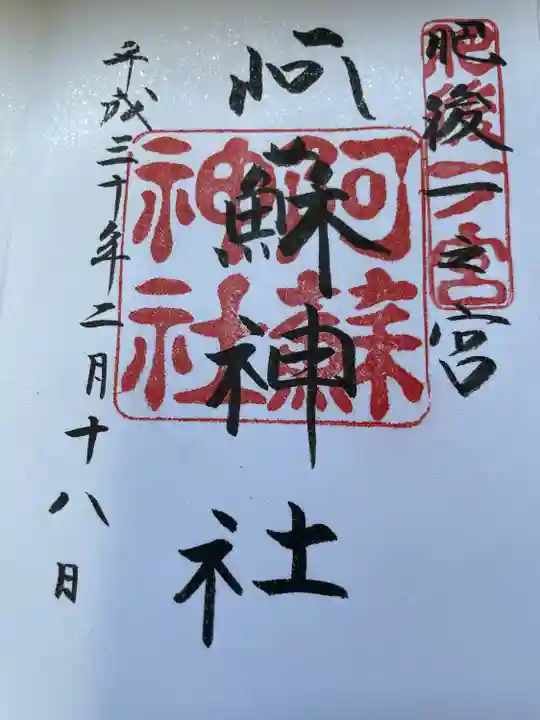 肥後一之宮
肥後一宮
阿蘇神社
阿蘇神社
平成三十年二月十八日